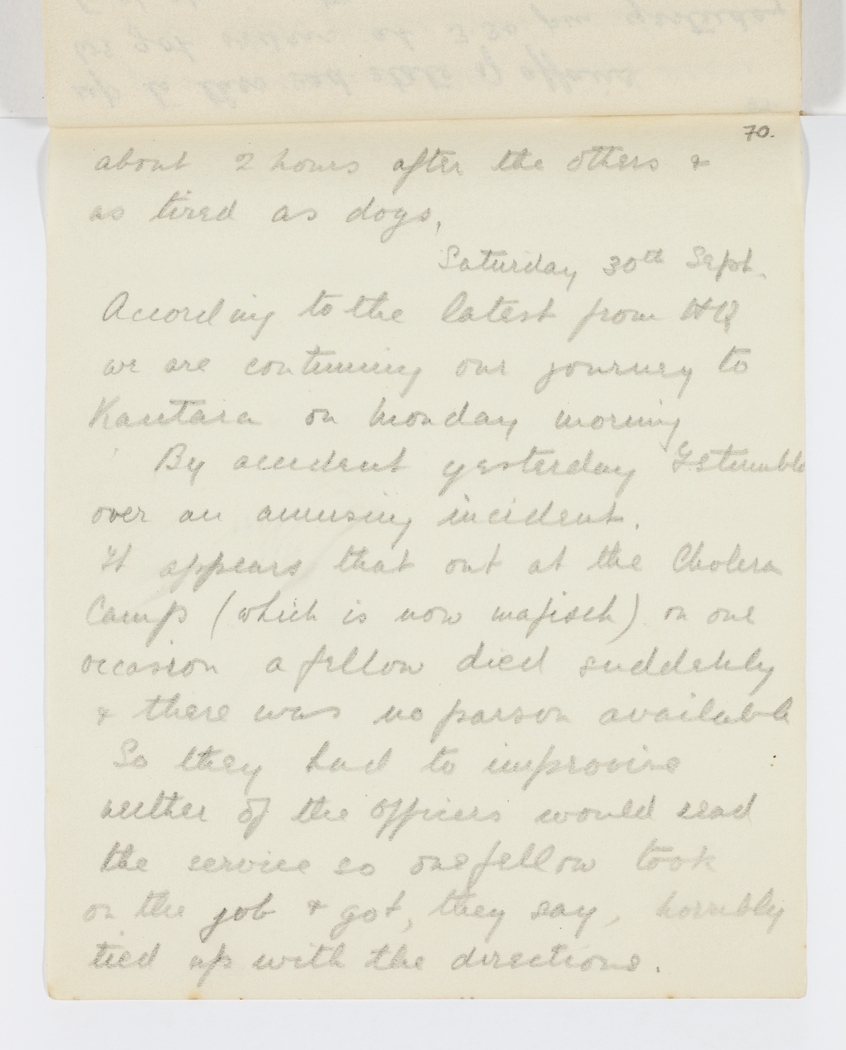 70.
about 2 hours after the others &
as tired as dogs.
Saturday 30th Sept.
According to the latest from HQ
we are continuing our journey to
Kantara on Monday morning
By accident yesterday I stumble
over an amusing incident.
It appears that out at the Cholera
Camp (which is now mafisch) on one
occasion a fellow died suddenly
& there was no parson available
So they had to improvise
neither of the officers would read
the service so one fellow took
on the job & got, they say, horribly
tied up with the directions.